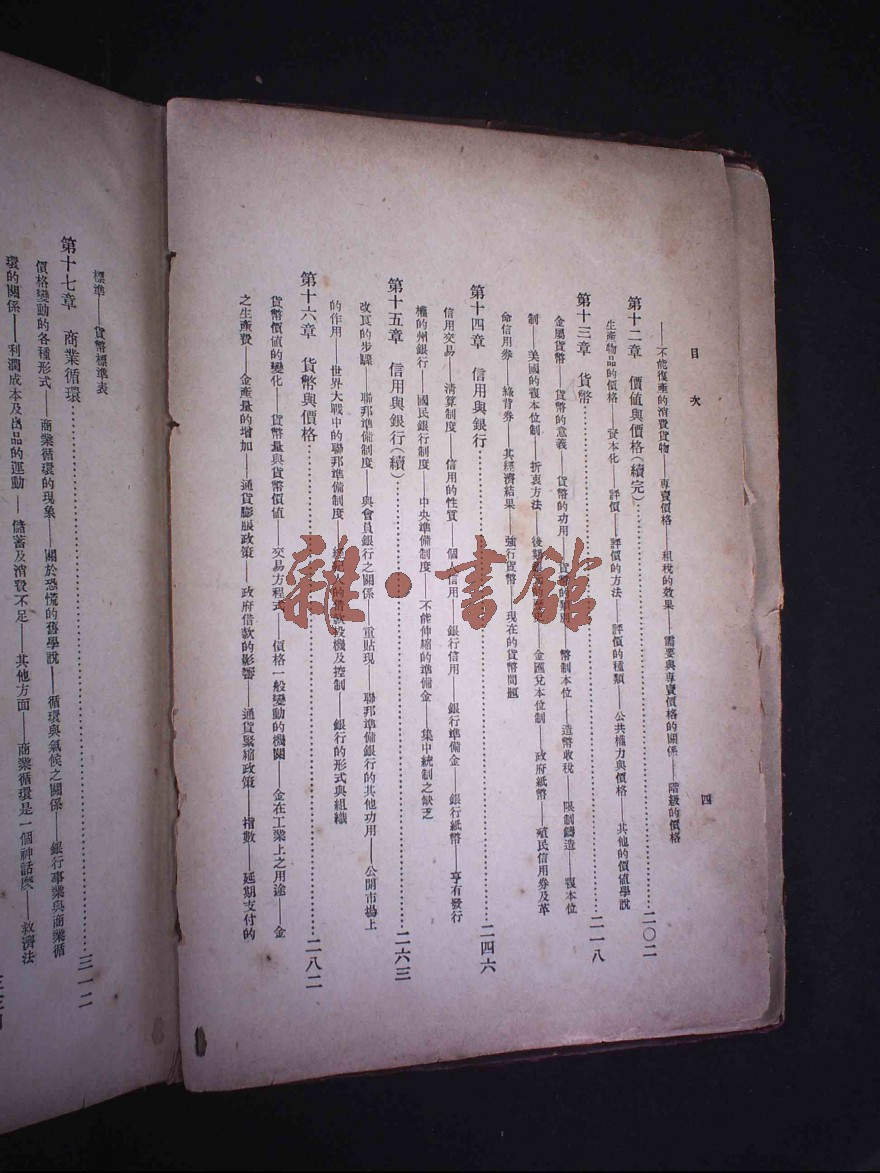 目次
四
——不能復產的消費貨物——專賣價格——租稅的效果——需要與專賣價格的關係——階級的價格
第十二章 價値與價格(續完)……二〇二
生產物品的價格——資本化——評價——評價的方法——評價的種類——公共權力與價格——其他的價値學說
第十三章 貨幣……二一八
金屬貨幣——貨幣的意義——貨幣的功用——幣制本位——造幣收稅——限制鑄造——複本位
制——美國的複本位制——折衷方法——金匯兌本位制——政府紙幣——殖民信用券及革
命信用券——綠背券——其經濟結果——強行貨幣——現在的貨幣問題
第十四章 信用與銀行……二四六
信用交易——清算制度——信用的性質——個人信用——銀行信用——銀行準備金——銀行紙幣——享有發行
權的州銀行——國民銀行制度——中央準備制度——不能伸縮的準備金——集中統制之缺乏
第十五章 信用與銀行(續)……二六三
改良的步驟——聯邦準備制度——與會員銀行之關係——重貼現——聯邦準備銀行的其他功用——公開市場上
的作用——世界大戰中的聯邦準備制度——經紀人的借款投機及控制——銀行的形式與組織
第十六章 貨幣與價格……二八二
貨幣價値的變化——貨幣量與貨幣價値——交易方程式——價格一般變動的機關——金在工業上之用途——金
之生產費——金產量的增加——通貨膨脹政策——政府借款的影響——通貨緊縮政策——指數——延期支付的
標準——貨幣標準表
第十七章 商業循環……三一二
價格變動的各種形式——商業循環的現象——關於恐慌的舊學說——循環與氣候之關係——銀行事業與商業循
環的關係——利潤成本及出品的運動——儲蓄及消費不足——其他方面——商業循環是一個神話麼——救濟法
雜·書館